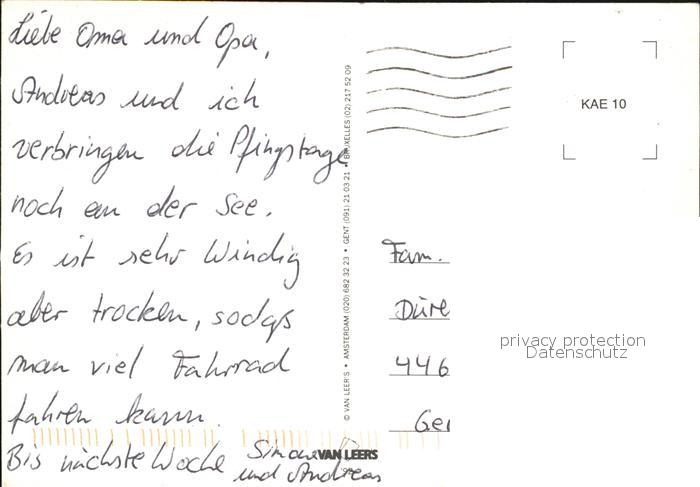 Liebe Oma und Opa,
Andreas und ich
verbringen die Pfingstage
noch an der See.
Es ist sehr Windig
aber trocken, sodass
man viel Fahrrad
fahren kann.
Bis nächste Woche Simone
und Andreas
© VAN LEER'S • AMSTERDAM (020) 682 32 23 • GENT (091) 21 03 21 • BRUXELLES (02) 217 52 09
VAN LEERS
KAE 10
Fam.
Düre
446
Ger
privacy protection
Datenschutz